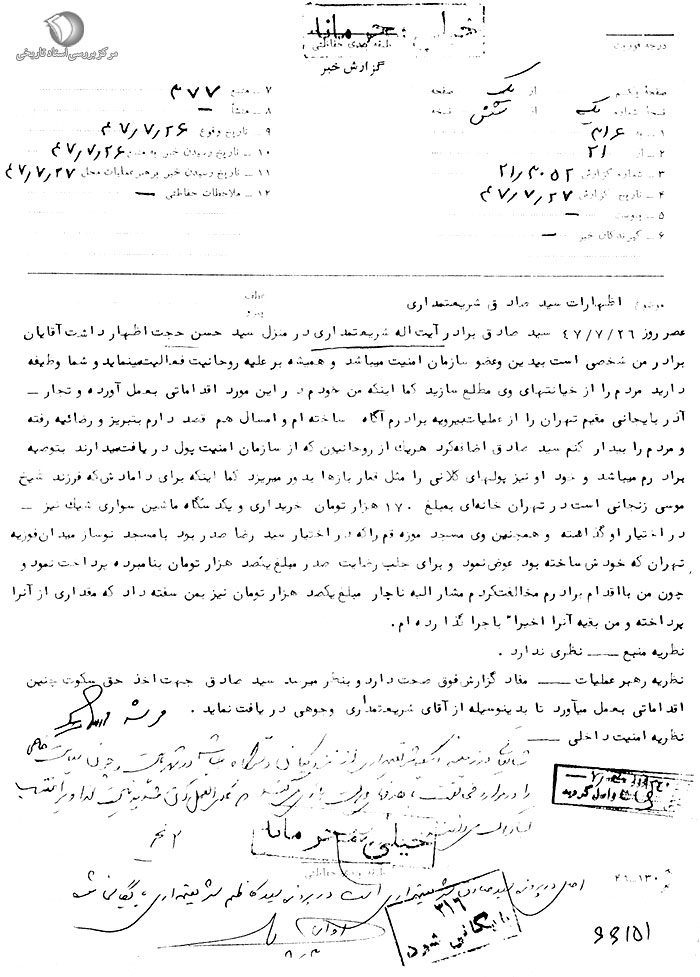 مرکز بررسی اسناد تاریخی
خیلی محرمانه
طبقه بندی حفاظتی
گزارش خبر
درجه فوریت
صفحه یکم از یک صفحه
نسخه شماره یک از شش نسخه
۱ ـ به ۳۱۶
۲ ـ از ۲۱
۳ ـ شماره گزارش ۲۱/۳۰۵۲
۴ ـ تاریخ گزارش ۴۷/۷/۲۷
۵ ـ پیوست ـ
۶ ـ گیرندگان خبر ـ
۷ ـ منبع ۳۷۷
۸ ـ منشأ ـ
۹ ـ تاریخ وقوع ۴۷/۷/۲۶
۱۰ ـ تاریخ رسیدن خبر به منبع ۴۷/۷/۲۶
۱۱ ـ تاریخ رسیدن خبر برهبر عملیات محل ۴۷/۷/۲۷
۱۲ ـ ملاحظات حفاظتی ـ
موضوع اظهارات سید صادق شریعتمداری
عطف
پیرو
عصر روز ۴۷/۷/۲۶ سید صادق برادر آیت اله شریعتمداری در منزل سید حسن حجت اظهار داشت آقایان
برادر من شخصی است بیدین وعضو سازمان امنیت میباشد و همیشه بر علیه روحانیت فعالیت مینماید و شما وظیفه
دارید مردم را از خیانتهای وی مطلع سازید کما اینکه من خودم در این مورد اقداماتی بعمل آورده و تجار ـ
آذربایجانی مقیم تهران را از عملیات بیرویه برادرم آگاه ساخته ام و امسال هم قصد دارم بتبریز و رضائیه رفته
و مردم را بیدار کنم سید صادق اضافه کرد هریک از روحانیون که از سازمان امنیت پول دریافت میدارند بتوصیه
برادرم میباشد و خود او نیز پولهای کلانی را مثل قمار بازها بدور میریزد کما اینکه برای دامادش که فرزند شیخ
موسی زنجانی است در تهران خانه‌ای بمبلغ ۱۷۰ هزار تومان خریداری و یکدستگاه ماشین سواری شیک نیز ـ
در اختیار او گذاشته و همچنین وی مسجد موزه قم را که در اختیار سید رضا صدر بود با مسجد نوساز میدان فوزیه
تهران که خودش ساخته بود عوض نمود و برای جلب رضایت صدر مبلغ یکصد هزار تومان بنامبرده پرداخت نمود و
چون من با اقدام برادرم مخالفت کردم مشارالیه ناچار مبلغ یکصد هزار تومان نیز بمن سفته داد که مقداری از آنرا
پرداخته و من بقیه آنرا اخیرا" باجرا گذارده ام.
نظریه منبع ـــ نظری ندارد.
نظریه رهبر عملیات ـــ مفاد گزارش فوق صحت دارد و بنظر میرسد سید صادق جهت اخذ حق سکوت چنین
اقداماتی بعمل میآورد تا بدینوسیله از آقای شریعتمداری وجوهی دریافت نماید.
نظریه امنیت داخلی ـــ
خیلی محرمانه
اصل در پرونده سید صادق شریعتمداری است در پرونده سید کاظم شریعتمداری بایگانی شود
۳۱۶
بایگانی شود
۴۶ـ۱۳۰
۶۶۱۵۱